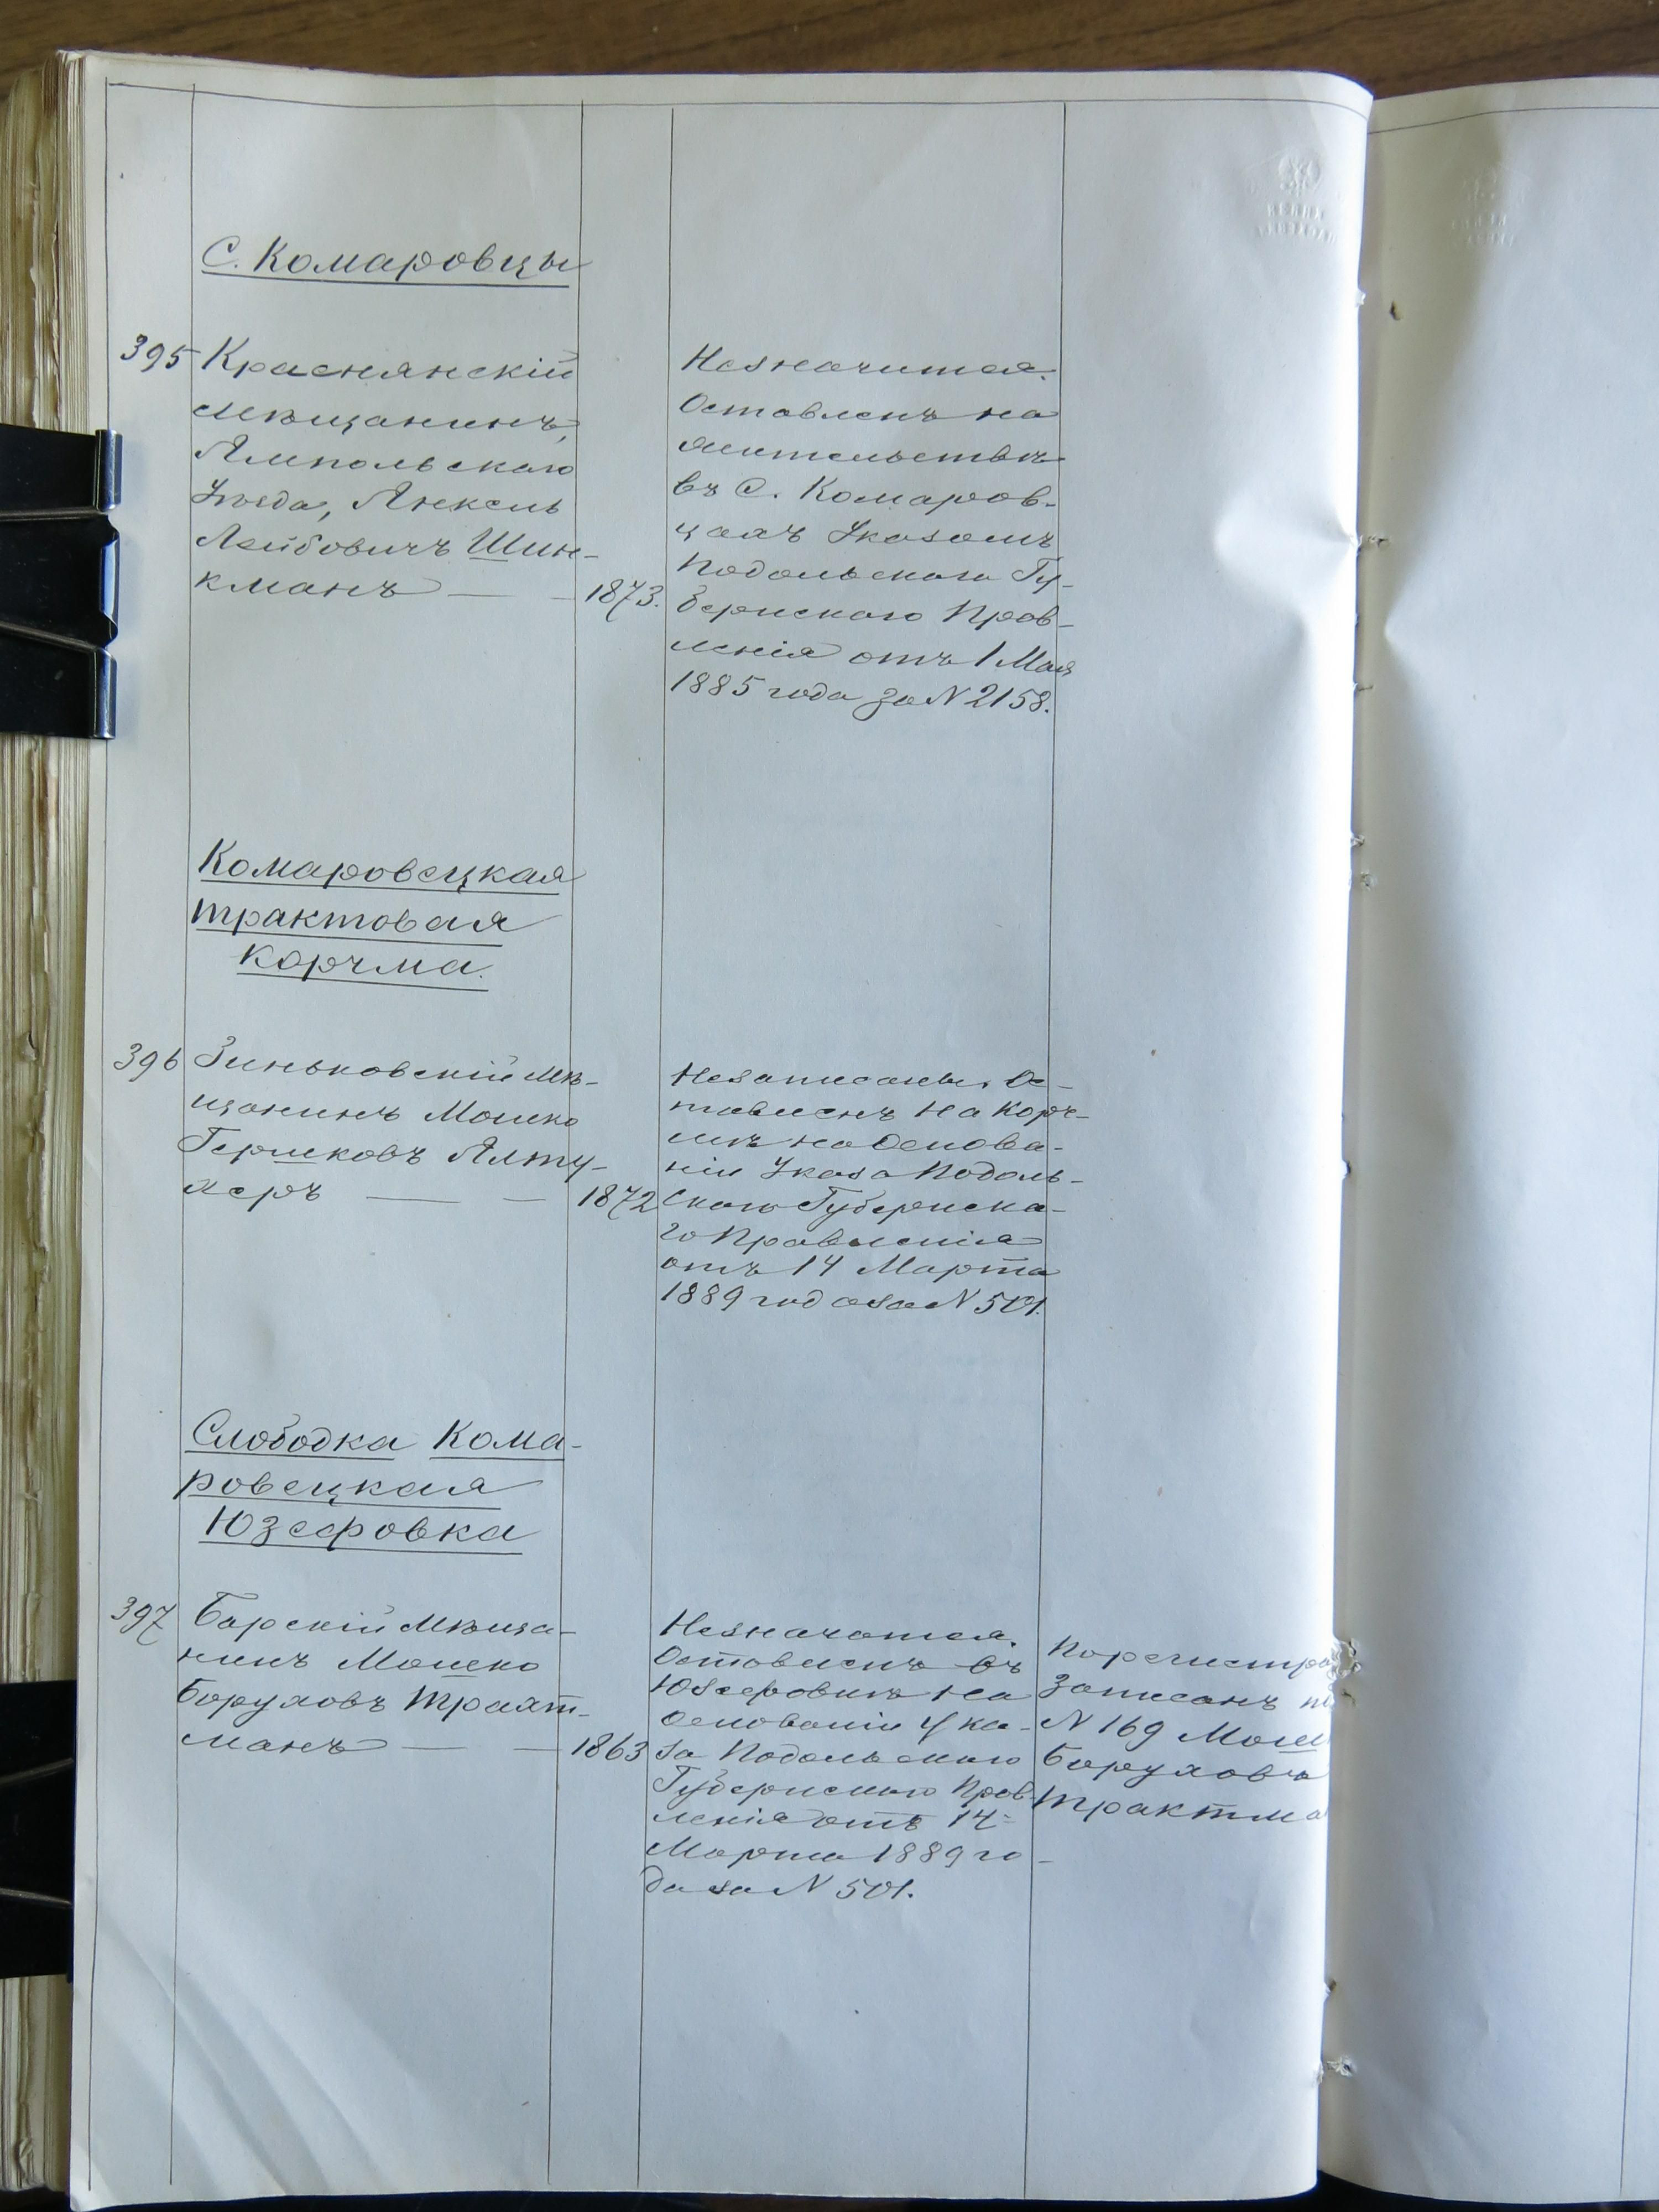 С. Комаровцы
395 Краснянскій
мѣщанинъ,
Ямпольскаго
Уѣзда, Янкель
Лейбовичъ Шин-
кманъ — — 1873.
Незначится.
Оставленъ на
жительствѣ
въ С. Комаров-
цахъ Указомъ
Подольскаго Гу-
бернскаго Прав-
ленія отъ 1 Мая
1885 года за N 2158.
Комаровецкая
трактовая
корчма.
396 Зиньковскій мѣ-
щанинъ Мошко
Гершковъ Алту-
херъ — — 1872
Незаписаны. Ос-
тавленъ на Корч-
мѣ на Основа-
ніи Указа Подоль-
скаго Губернска-
го Правленія
отъ 14 Марта
1889 года за N 501.
Слободка Кома-
ровецкая
Юзефовка
397 Барскій мѣща-
нинъ Мошко
Боруховъ Трахт-
манъ — — 1863
Незначатся.
Оставленъ въ
Юзефовкѣ на
Основаніи Ука-
за Подольскаго
Губернскаго Прав-
ленія отъ 14
Марта 1889 го-
да за N 501.
Записанъ
N 169
Боруховъ